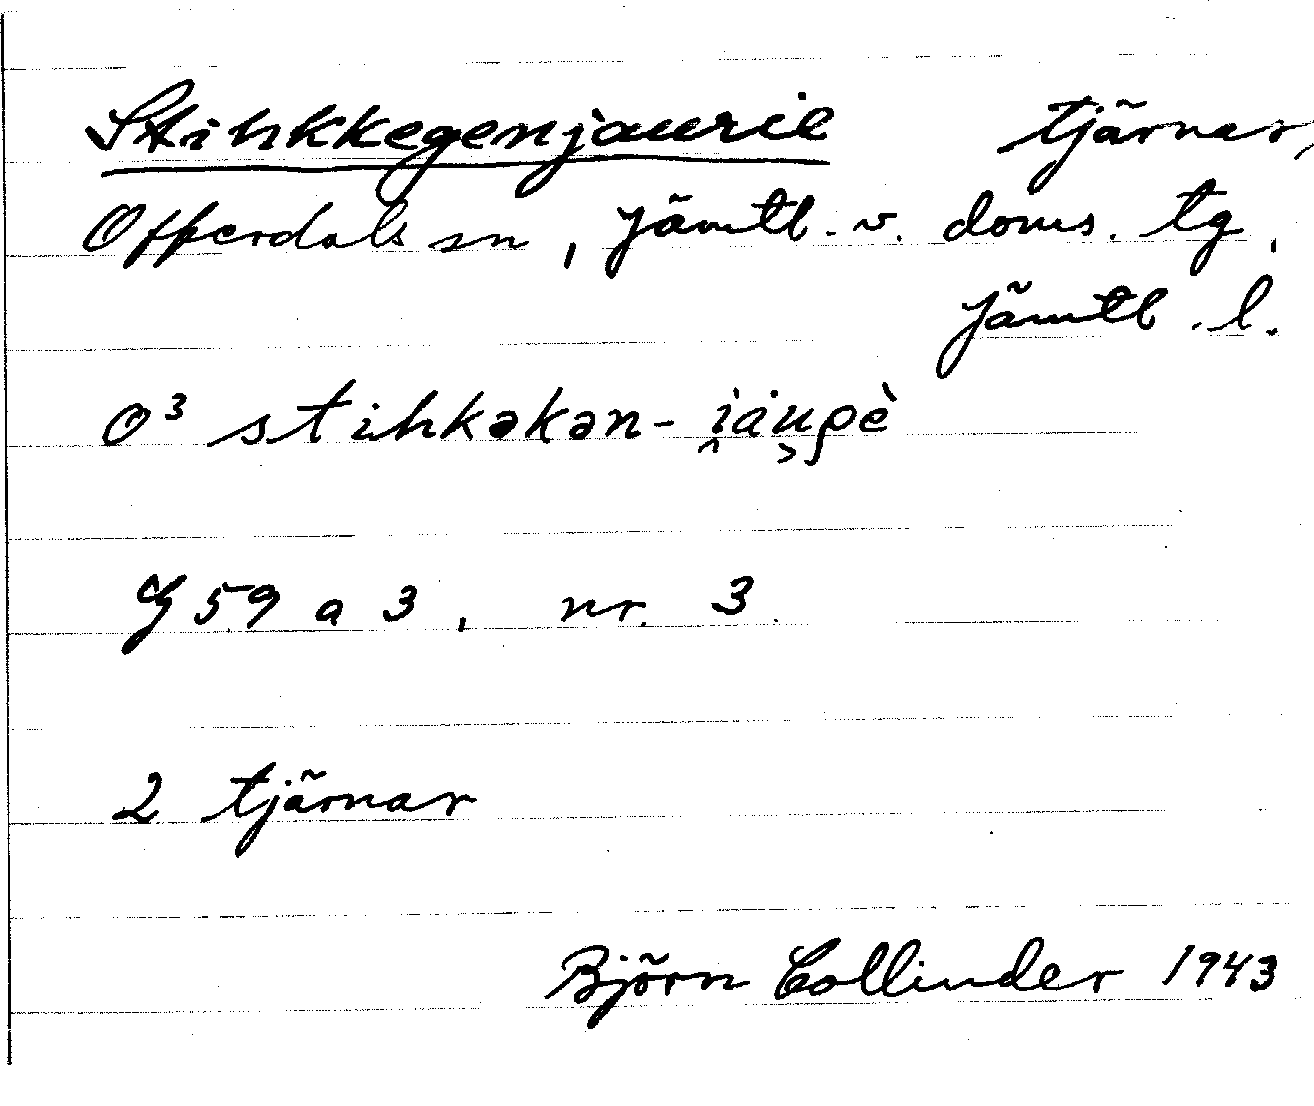 Stihkkegenjaurie tjärnar,
Offerdals sn, Jämtl. v. doms. tg,
Jämtl. l.
O³ stihkəkən-i̭ȧu̬ρè
G 59 a 3, nr. 3.
2 tjärnar
Björn Collinder 1943